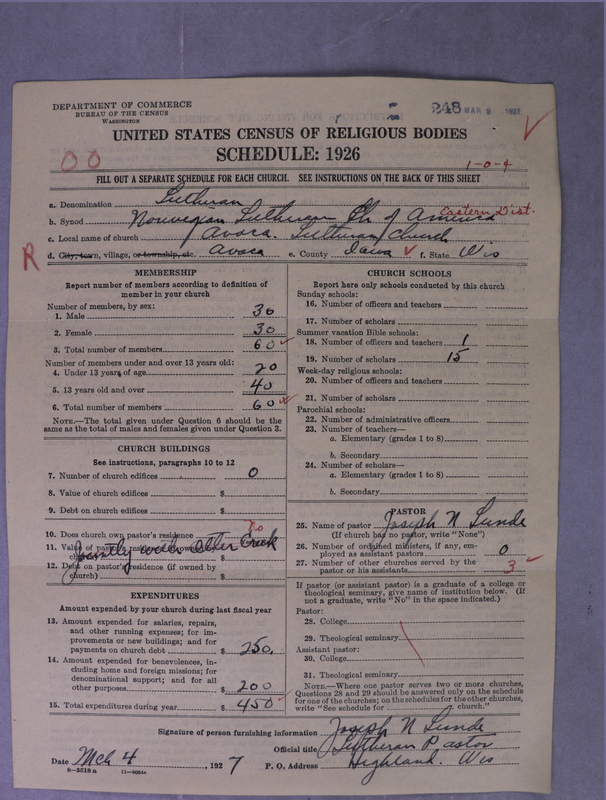 DEPARTMENT OF COMMERCE
BUREAU OF THE CENSUS
WASHINGTON
248 MAR 8 1927
UNITED STATES CENSUS OF RELIGIOUS BODIES
SCHEDULE: 1926
00
1-0-4
FILL OUT A SEPARATE SCHEDULE FOR EACH CHURCH. SEE INSTRUCTIONS ON THE BACK OF THIS SHEET
a. Denomination Lutheran
b. Synod Norwegian Lutheran Ch of America Eastern Dist.
c. Local name of church Avoca Lutheran Church
R
d. City, town, village, or township, etc. Avoca e. County Iowa f. State Wis
MEMBERSHIP
Report number of members according to definition of
member in your church
Number of members, by sex:
1. Male 30
2. Female 30
3. Total number of members 60
Number of members under and over 13 years old:
4. Under 13 years of age 20
5. 13 years old and over 40
6. Total number of members 60
NOTE.—The total given under Question 6 should be the
same as the total of males and females given under Question 3.
CHURCH BUILDINGS
See instructions, paragraphs 10 to 12
7. Number of church edifices 0
8. Value of church edifices $
9. Debt on church edifices $
10. Does church own pastor's residence no
11. Value of pastor's residence
Jointly with Otter Creek
12. Debt on pastor's residence (if owned by
church) $
EXPENDITURES
Amount expended by your church during last fiscal year
13. Amount expended for salaries, repairs,
and other running expenses; for im-
provements or new buildings; and for
payments on church debt $ 250.
14. Amount expended for benevolences, in-
cluding home and foreign missions; for
denominational support; and for all
other purposes $ 200
15. Total expenditures during year $ 450
CHURCH SCHOOLS
Report here only schools conducted by this church
Sunday schools:
16. Number of officers and teachers
17. Number of scholars
Summer vacation Bible schools:
18. Number of officers and teachers 1
19. Number of scholars 15
Week-day religious schools:
20. Number of officers and teachers
21. Number of scholars
Parochial schools:
22. Number of administrative officers
23. Number of teachers—
a. Elementary (grades 1 to 8)
b. Secondary
24. Number of scholars—
a. Elementary (grades 1 to 8)
b. Secondary
PASTOR
25. Name of pastor Joseph N Lunde
(If church has no pastor, write "None")
26. Number of ordained ministers, if any, em-
ployed as assistant pastors 0
27. Number of other churches served by the
pastor or his assistants 3
If pastor (or assistant pastor) is a graduate of a college or
theological seminary, give name of institution below. (If
not a graduate, write "No" in the space indicated.)
Pastor:
28. College
29. Theological seminary
Assistant pastor:
30. College
31. Theological seminary
NOTE.—Where one pastor serves two or more churches,
Questions 28 and 29 should be answered only on the schedule
for one of the churches; on the schedules for the other churches,
write "See schedule for church."
Signature of person furnishing information Joseph N Lunde
Official title Lutheran Pastor
Date Mch 4, 1927 P. O. Address Highland. Wis
8-5518a